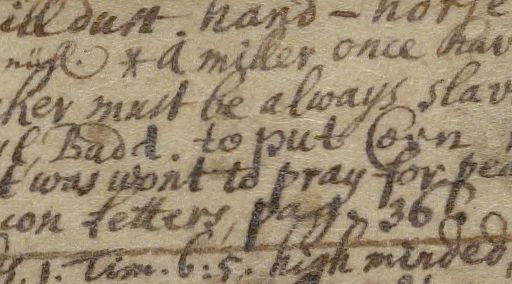 ill dust. hand-horse
* A miller once hav
ker must be always slav
l, Badd. to put Corn
t was wont to pray for pea
con letters, pag. 36
1. Tim. 6:5. high minded,